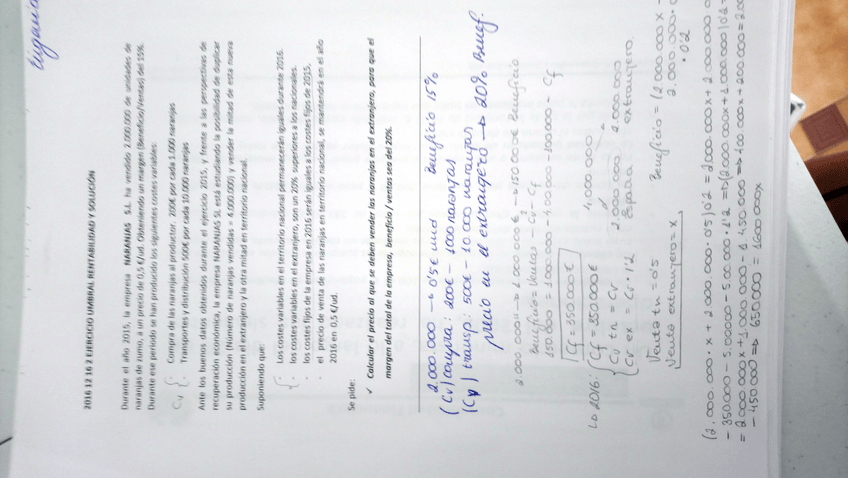 2016 12 16 2 EJERCICIO UMBRAL RENTABILIDAD Y SOLUCIÓN
Durante el año 2015, la empresa NARANJAS S.L. ha vendido 2.000.000 de unidades de
naranjas de zumo, a un precio de 0,5 €/ud. Obteniendo un margen (Beneficio/Ventas) del 15%.
Durante ese período se han producido los siguientes costes variables:
Cv { Compra de las naranjas al productor. 200€ por cada 1.000 naranjas
Transportes y distribución 500€ por cada 10.000 naranjas
Ante los buenos datos obtenidos durante el ejercicio 2015, y frente a las perspectivas de
recuperación económica, la empresa NARANJAS SL está estudiando la posibilidad de duplicar
su producción (Número de naranjas vendidas = 4.000.000) y vender la mitad de esta nueva
producción en el extranjero y la otra mitad en territorio nacional.
Suponiendo que:
- Los costes variables en el territorio nacional permanecerán iguales durante 2016.
- los costes variables en el extranjero, son un 20% superiores a los nacionales.
- los costes fijos de la empresa en 2016 serán iguales a los costes fijos de 2015,
- el precio de venta de las naranjas en territorio nacional, se mantendrá en el año
2016 en 0,5 €/ud.
Se pide:
✓ Calcular el precio al que se deben vender las naranjas en el extranjero, para que el
margen del total de la empresa, beneficio / ventas sea del 20%.
2.000.000 → 0'5€ und Beneficio 15%
(Cv) compra: 200€ - 1000 naranjas
(Cv) transp: 500€ - 10.000 naranjas
precio en el extrangero → 20% Benef.
Beneficio = Ventas - Cv - Cf
150.000 = 1.000.000 - 400.000 - 100.000 - Cf
Cf = 350.000 €
↳ 2016: Cf = 350.000€ 4.000.000
Cv tn = Cv 2.000.000 2.000.000
Cv ex = Cv · 1'2 España extranjero
Venta tn = 0'5
Venta extranjero = x Beneficio = (2.000.000 x
· 0'2
- 450.000 ⇒ 650.000 = 1.600.000x